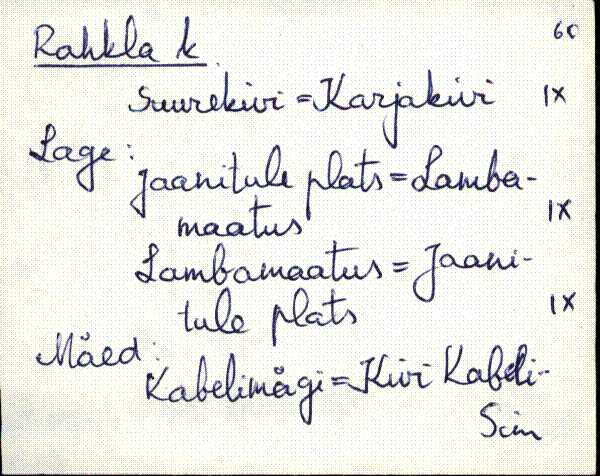 60
Rahkla k.
Suurekivi = Karjakivi IX
Lage:
Jaanitule plats = Lamba-
maatus IX
Lambamaatus = Jaani-
tule plats IX
Mäed:
Kabelimägi = Kivi Kabeli-
Sim